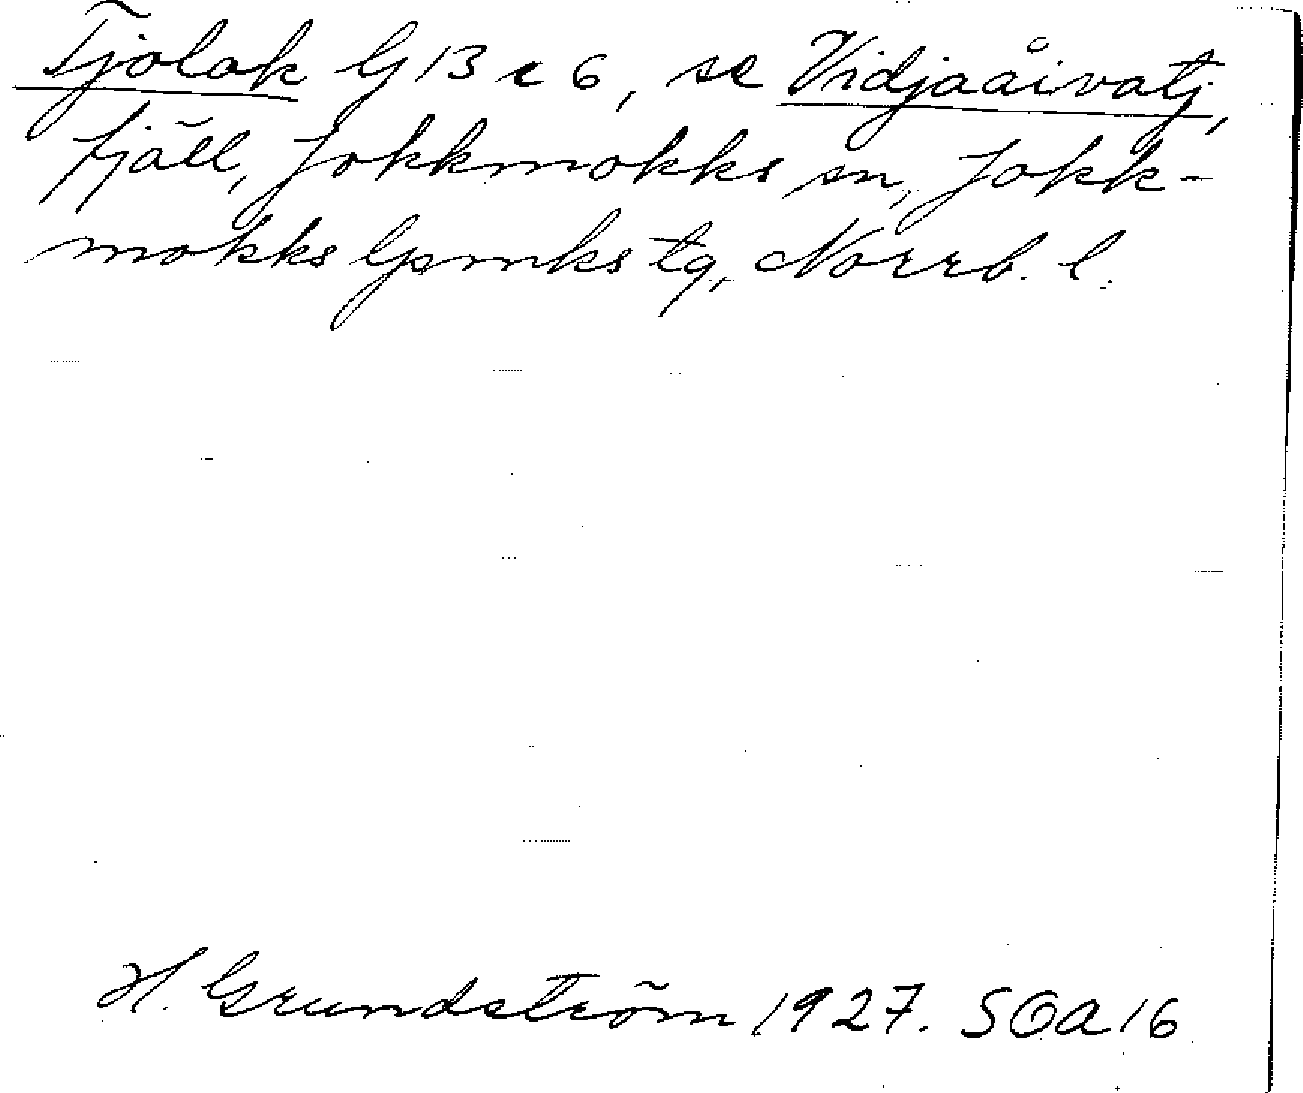 Tjolak G 13 c 6, se Vidjaåivatj,
fjäll, Jokkmokks sn, Jokk-
mokks lpmks tg, Norrb. l.
H. Grundström 1927. SOA 16